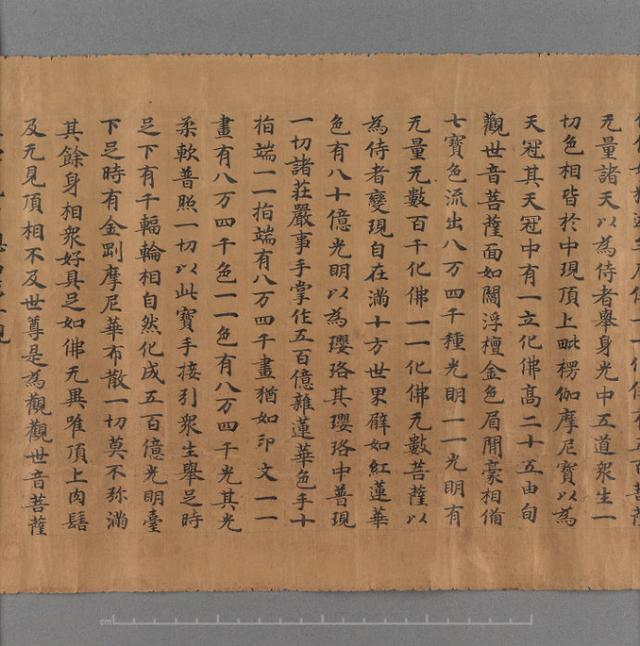 无量諸天以為侍者舉身光中五道衆生一
切色相皆於中現頂上毗楞伽摩尼寶以為
天冠其天冠中有一立化佛髙二十五由旬
觀世音菩薩面如閻浮檀金色眉間豪相俻
七寶色流出八万四千種光明一一光明有
无量无數百千化佛一一化佛无數菩薩以
為侍者變現自在滿十方世界辟如紅蓮華
色有八十億光明以為瓔珞其瓔珞中普現
一切諸莊嚴事手掌作五百億雜蓮華色手十
指端一一指端有八万四千畫猶如印文一一
畫有八万四千色一一色有八万四千光其光
柔軟普照一切以此寶手接引衆生舉足時
足下有千輻輪相自然化成五百億光明臺
下足時有金剛摩尼華布散一切莫不弥滿
其餘身相衆好具足如佛无異唯頂上肉髻
及无見頂相不及世尊是為觀觀世音菩薩
cm